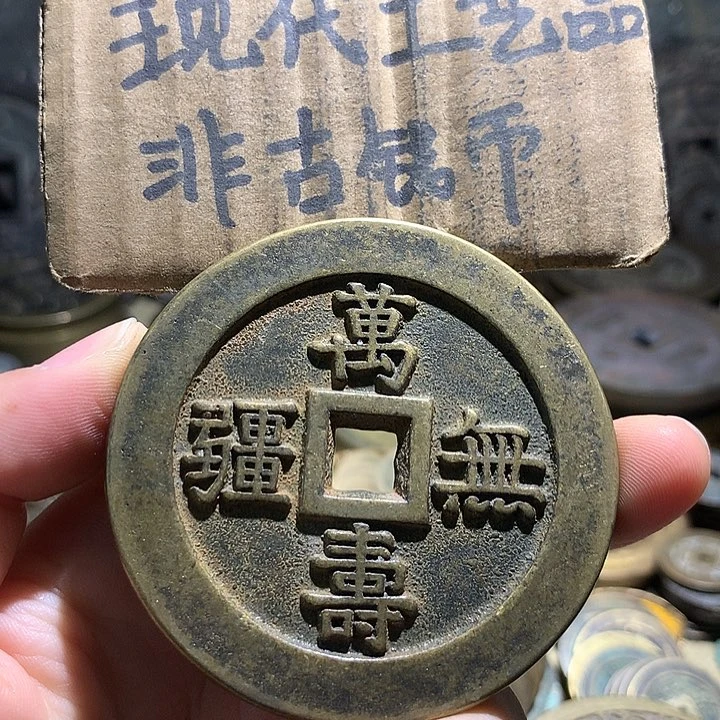 现代工艺品
非古钱币
萬壽無疆